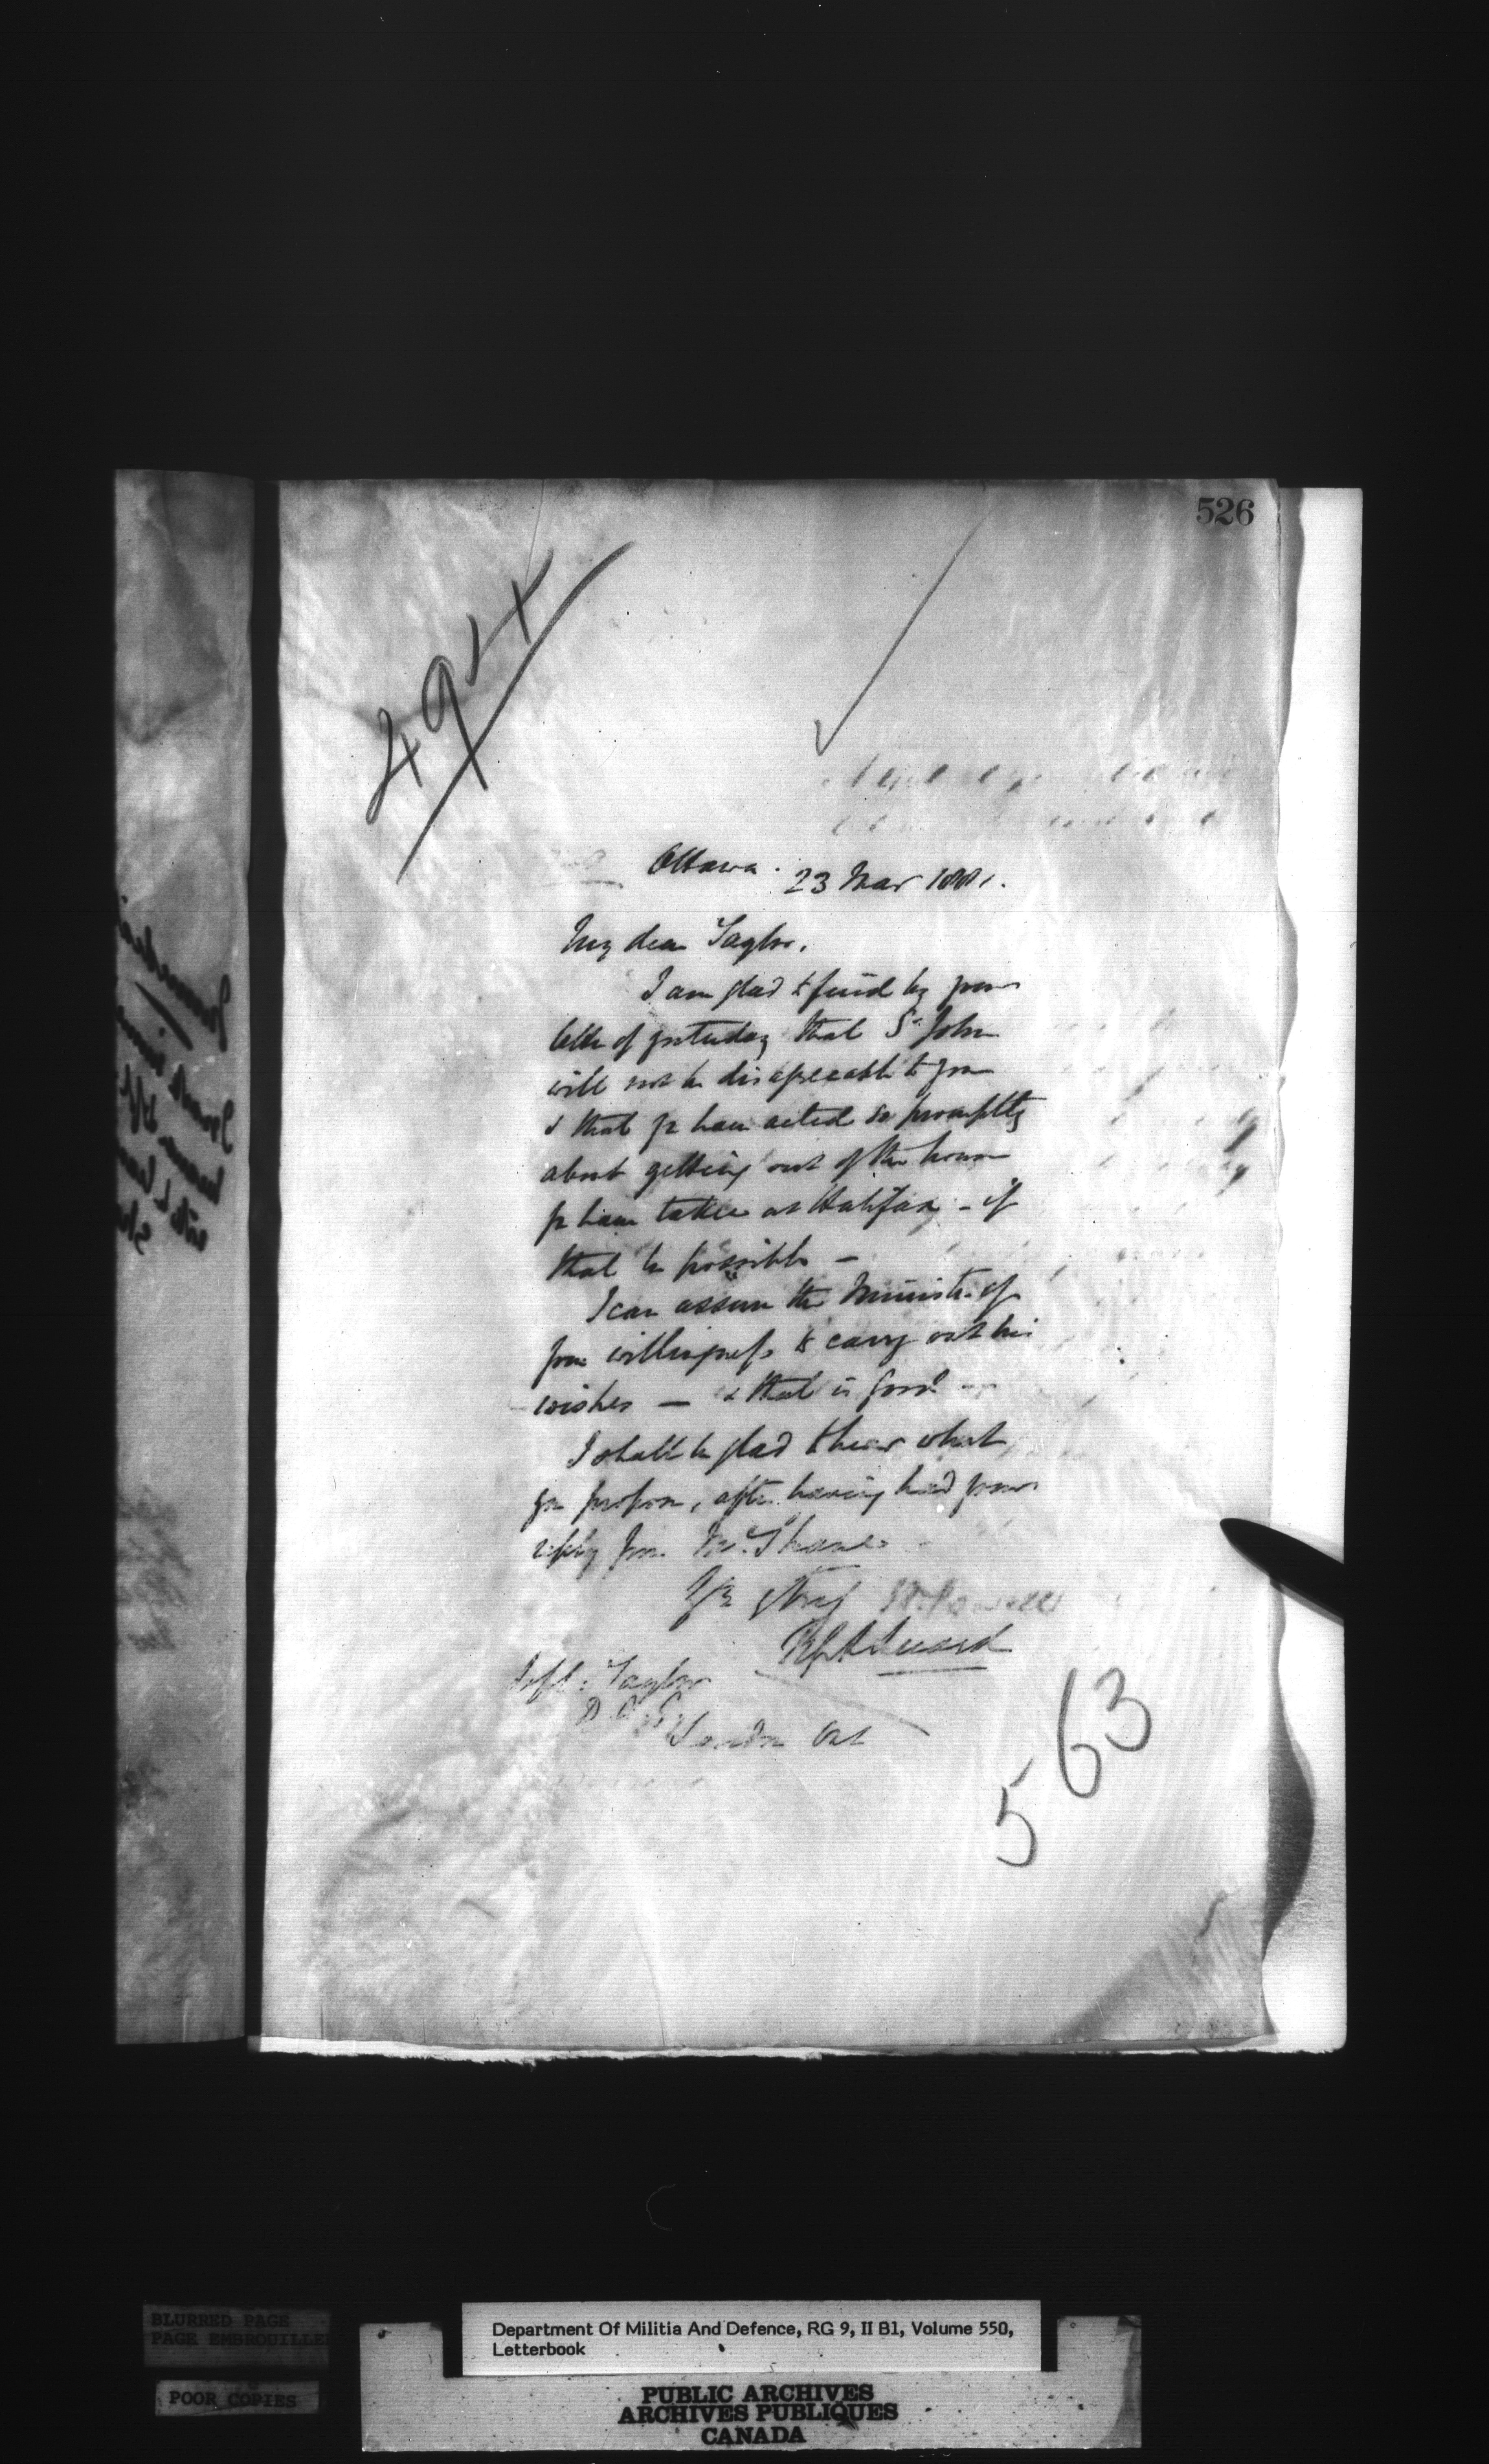 526
Ottawa. 23 Mar 1881.
My dear Taylor,
I am glad to find by your
letter of yesterday that St John
will not be disagreeable to you
& that yr have acted so promptly
about getting out of the house
yr have taken at Halifax - if
that be possible -
I can assure the Minister of
your willingness to carry out his
wishes - & that is good -
I shall be glad to hear what
you propose, after having had your
reply from
W. Powell
Taylor
London Ont
563
BLURRED PAGE
PAGE EMBROUILLE
POOR COPIES
Department Of Militia And Defence, RG 9, II B1, Volume 550,
Letterbook
PUBLIC ARCHIVES
ARCHIVES PUBLIQUES
CANADA